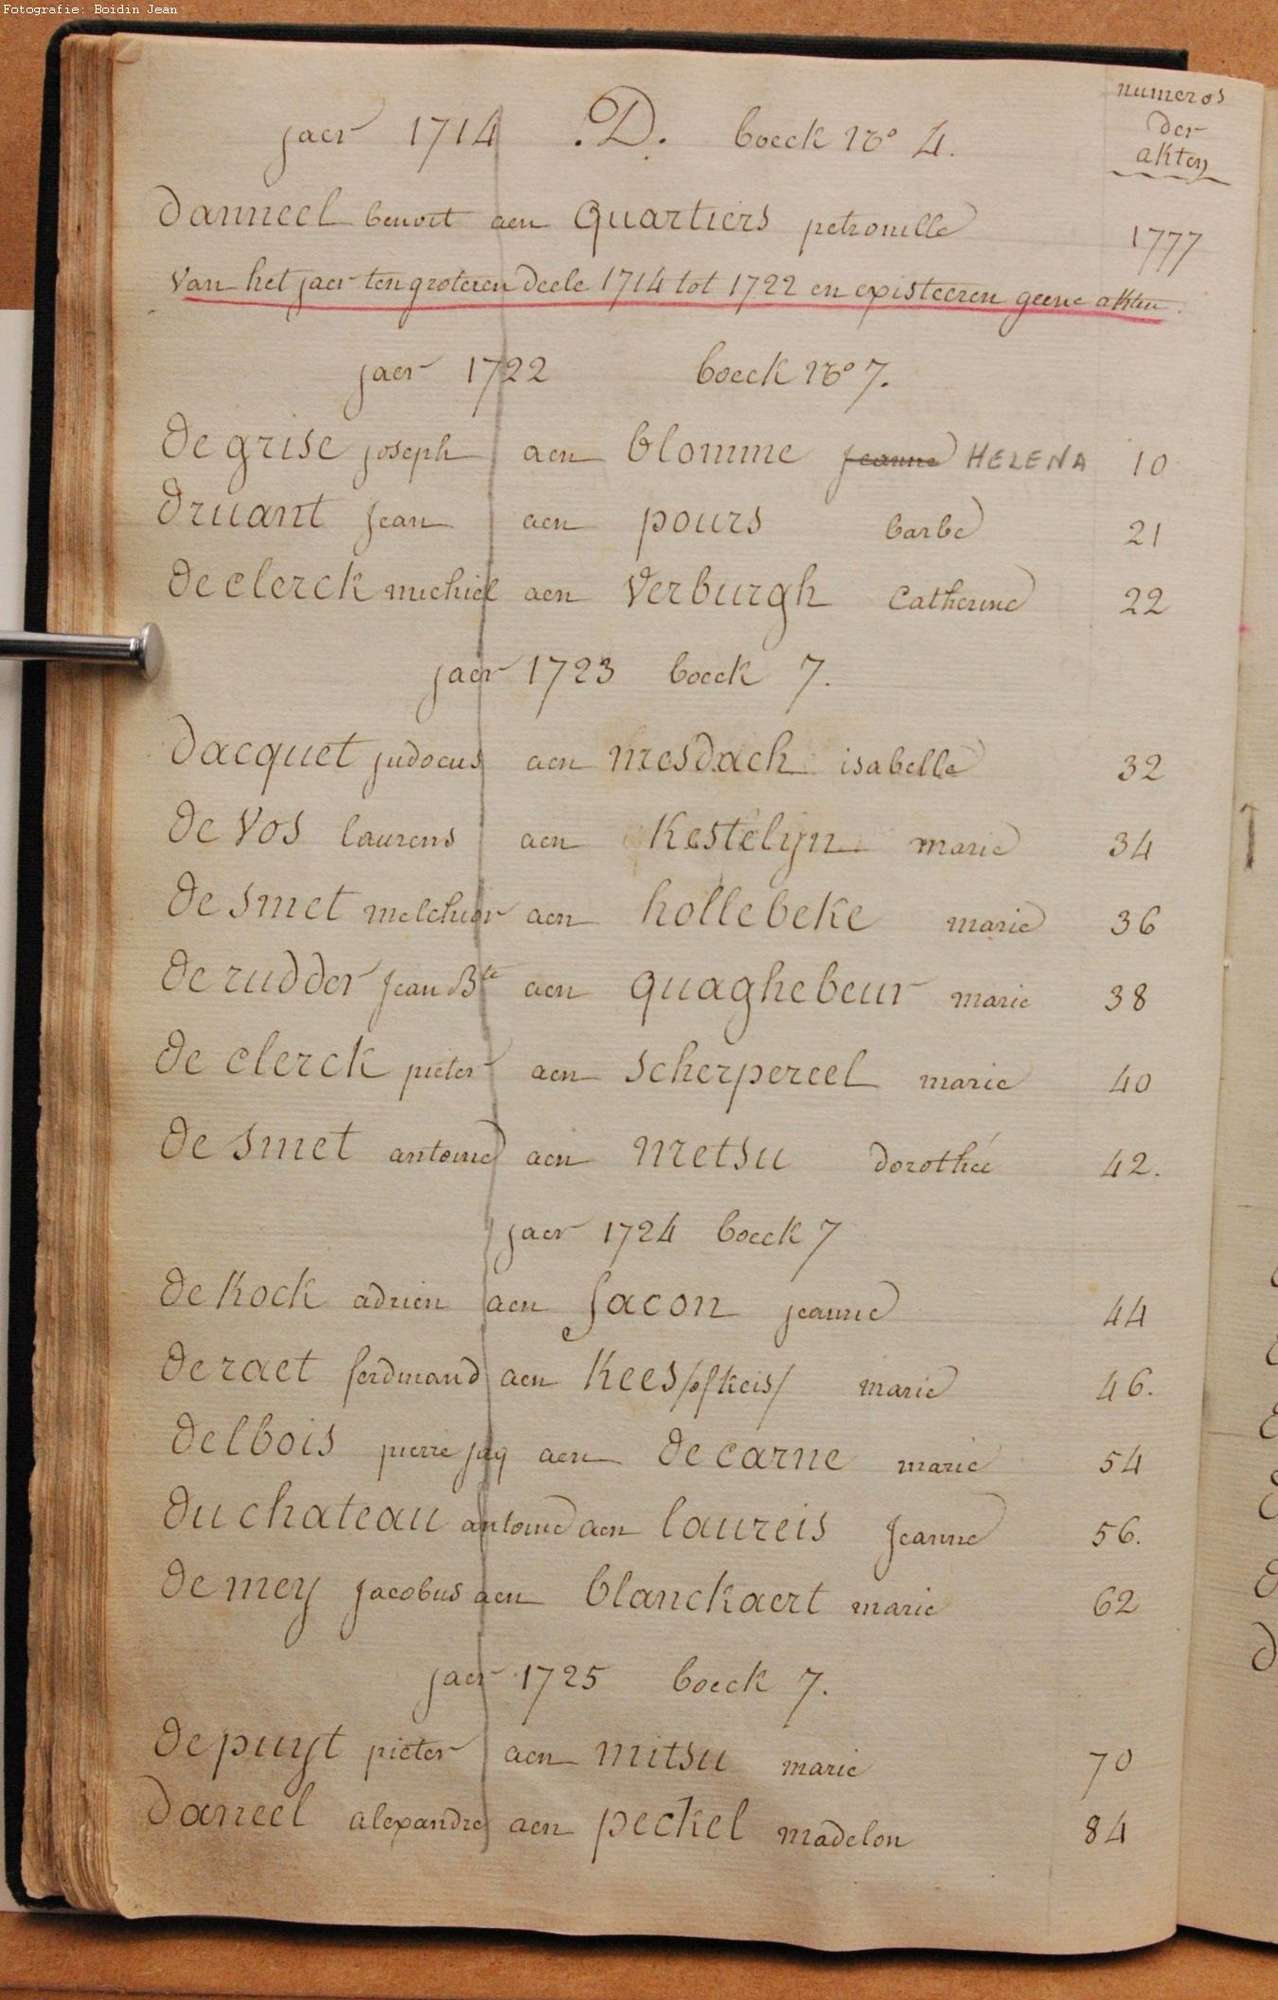 Fotografie: Boidin Jean
numeros
der
akten
jaer 1714 .D. boeck No 4.
danneel benoit aen quartiers petronille 1777
van het jaer ten groteren deele 1714 tot 1722 en existeeren geene akten.
jaer 1722 boeck No 7.
de grise joseph aen blomme jeanne HELENA 10
druant jean aen pours barbe 21
de clerck michiel aen verburgh catherine 22
jaer 1723 boeck 7.
dacquet judocus aen mesdach isabelle 32
de vos laurens aen kestelyn marie 34
de smet melchior aen hollebeke marie 36
de rudder jean Bte aen quaghebeur marie 38
de clerck pieter aen scherpereel marie 40
de smet antoine aen metsu dorothée 42.
jaer 1724 boeck 7
de kock adrien aen facon jeanne 44
de raet ferdinand aen kees /of keis/ marie 46.
delbois pierre jaq aen de carne marie 54
du chateau antoine aen laureis jeanne 56.
de mey jacobus aen blanckaert marie 62
jaer 1725 boeck 7.
de puyt pieter aen mitsu marie 70
daneel alexandre aen peckel madelon 84